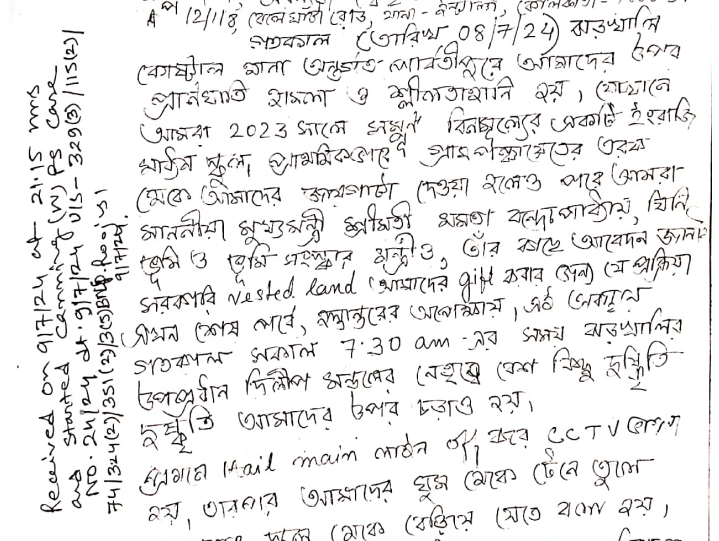 Received on 9/7/24 at 21:15 hrs
and started Canning (W) PS Case
NO. 24/24 dt. 9/7/24 U/S - 329(3)/115(2)/
74/324(2)/351(2)/3(5) BNS.
9/7/24.
12/1/8, বেলেঘাটা রোড, থানা -
গতকাল (তারিখ 08/7/24) ঝড়খালি
কোস্টাল থানা অন্তর্গত পার্বতীপুরে আমাদের উপর
প্রাণঘাতী হামলা ও শ্লীলতাহানি হয়, যেখানে
আমরা 2023 সালে সম্পূর্ণ বিনামূল্যের একটি ইংরাজি
মাধ্যম স্কুল, প্রাথমিকভাবে গ্রাম পঞ্চায়েতের তরফ
থেকে আমাদের জায়গাটা দেওয়া হলেও পরে আমরা
মাননীয়া মুখ্যমন্ত্রী শ্রীমতী মমতা বন্দ্যোপাধ্যায়, যিনি
ভূমি ও ভূমি সংস্কার মন্ত্রীও, তাঁর কাছে আবেদন জানাই
সরকারি vested land আমাদের gift করার জন্য যে প্রক্রিয়া
এখন শেষ পর্বে, হস্তান্তরের অপেক্ষায়,
গতকাল সকাল 7:30 am -এর সময় ঝড়খালির
উপপ্রধান দিলীপ মন্ডলের নেতৃত্বে বেশ কিছু দুষ্কৃতি
দুষ্কৃতি আমাদের উপর চড়াও হয়,
প্রথমে main লাইন off করে CCTV
হয়, তারপর আমাদের ঘুম থেকে টেনে তুলে
থেকে বেরিয়ে যেতে বলা হয়,